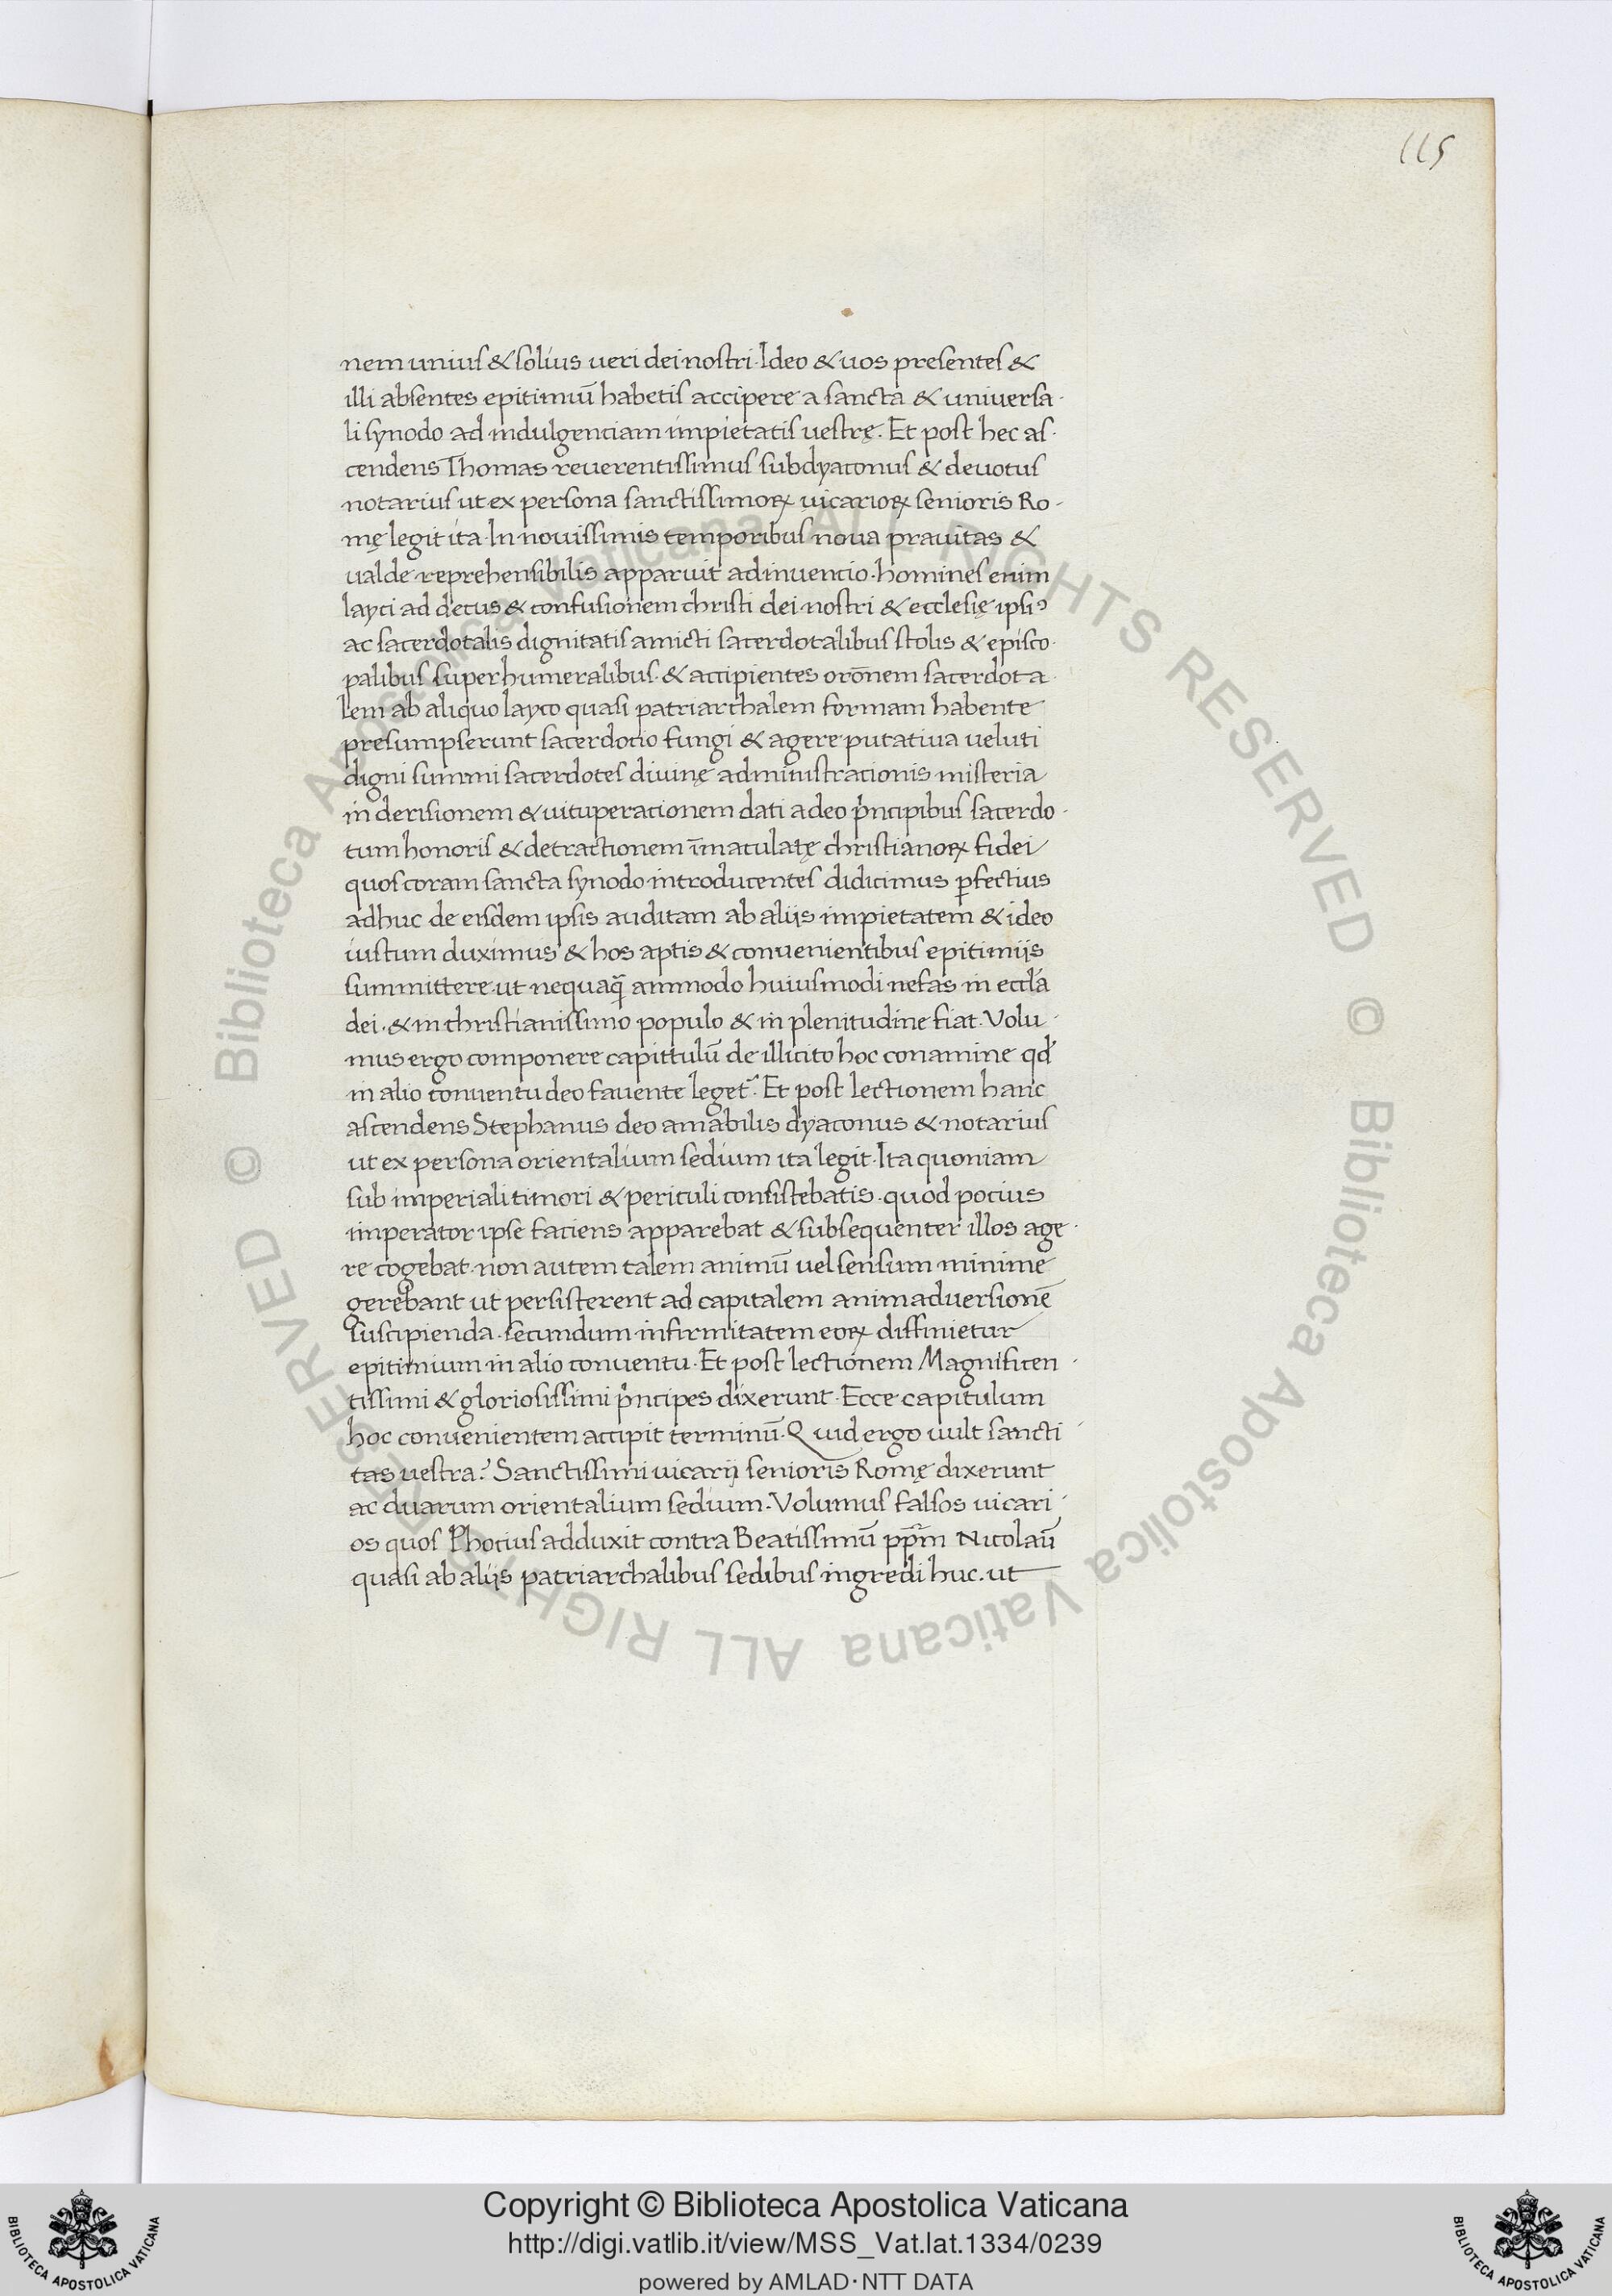 115
nem unius & solius ueri dei nostri. Ideo & uos presentes &
illi absentes epitimiū habetis accipere a sancta & uniuersa-
li synodo ad indulgenciam impietatis uestrę. Et post hec as-
cendens Thomas reuerentissimus subdyaconus & deuotus
notarius ut ex persona sanctissimoꝝ uicarioꝝ senioris Ro-
mę legit ita. In nouissimis temporibus noua prauitas &
ualde reprehensibilis apparuit adinuencio. homines enim
layci ad decus & confusionem christi dei nostri & ecclesię ipsiꝰ
ac sacerdotalis dignitatis amicti sacerdotalibus stolis & episco-
palibus superhumeralibus. & accipientes orōnem sacerdota-
lem ab aliquo layco quasi patriarchalem formam habente
presumpserunt sacerdocio fungi & agere putatiua ueluti
digni summi sacerdotes diuinę administracionis misteria
in derisionem & uituperacionem dati a deo pⁱncipibus sacerdo-
tum honoris & detractionem īmaculatę christianoꝝ fidei
quos coram sancta synodo introducentes didicimus ꝑfectius
adhuc de eisdem ipsis auditam ab aliis impietatem & ideo
iustum duximus & hos aptis & conuenientibus epitimiis
summittere. ut nequaq̄ ammodo huiusmodi nefas in eccl̄a
dei. & in christianissimo populo & in plenitudine fiat. Volu-
mus ergo componere capittulū de illicito hoc conamine qd̄
in alio conuentu deo fauente leget᷑. Et post lectionem hanc
ascendens Stephanus deo amabilis dyaconus & notarius
ut ex persona orientalium sedium ita legit. Ita quoniam
sub imperiali timori & periculi consistebatis. quod pocius
imperator ipse faciens apparebat & subsequenter illos age-
re cogebat. non autem talem animū uel sensum minime
gerebant ut persisterent ad capitalem animaduersionē
suscipienda. secundum infirmitatem eoꝝ diffinietur
epitimium in alio conuentu. Et post lectionem Magnificen-
tissimi & gloriosissimi pⁱncipes dixerunt. Ecce capitulum
hoc conuenientem accipit terminū. Quid ergo uult sancti-
tas uestra? Sanctissimi uicarij senioris Romę dixerunt
ac duarum orientalium sedium. Volumus falsos uicari-
os quos Phocius adduxit contra Beatissimū pp̄m Nicolaū
quasi ab aliis patriarchalibus sedibus ingredi huc. ut
© Biblioteca Apostolica Vaticana ALL RIGHTS RESERVED
© Biblioteca Apostolica Vaticana ALL RIGHTS RESERVED
BIBLIOTECA APOSTOLICA VATICANA
Copyright © Biblioteca Apostolica Vaticana
http://digi.vatlib.it/view/MSS_Vat.lat.1334/0239
powered by AMLAD·NTT DATA
BIBLIOTECA APOSTOLICA VATICANA